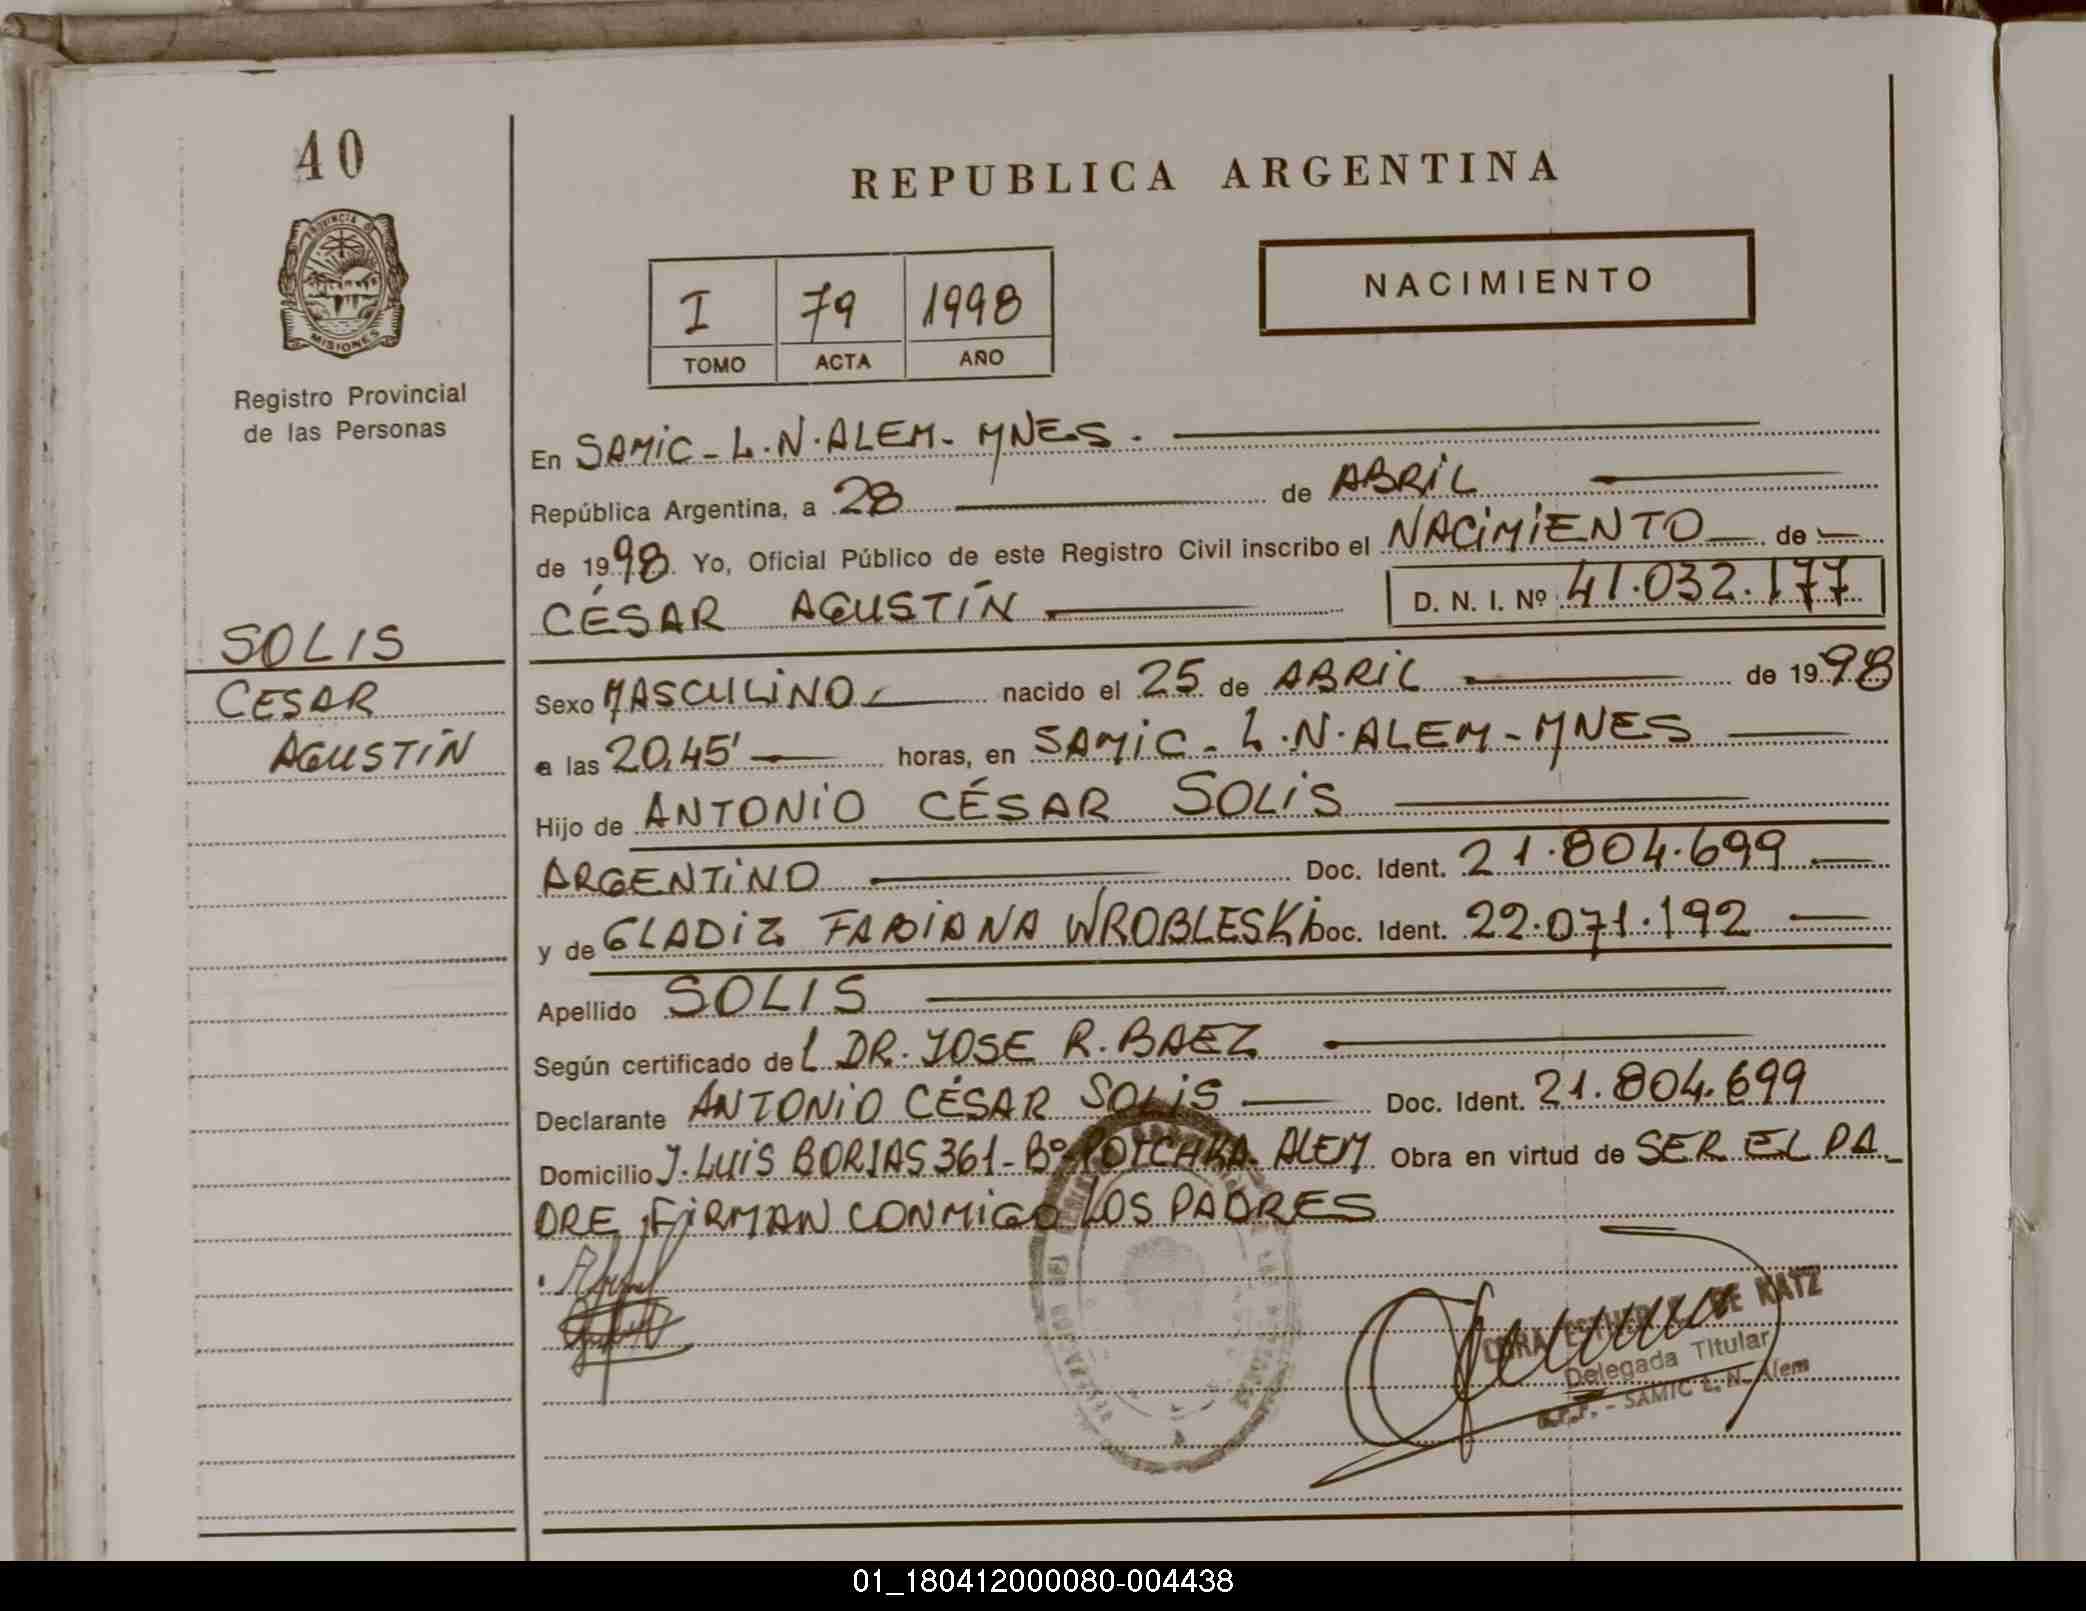 40
PROVINCIA DE
MISIONES
Registro Provincial
de las Personas
SOLIS
CESAR
AGUSTÍN
REPUBLICA ARGENTINA
I 79 1998
TOMO ACTA AÑO
NACIMIENTO
En SAMIC - L.N. ALEM - MNES.
República Argentina, a 28 de ABRIL
de 1998 Yo, Oficial Público de este Registro Civil inscribo el NACIMIENTO de
CÉSAR AGUSTÍN D. N. I. Nº 41.032.177
Sexo MASCULINO nacido el 25 de ABRIL de 1998
a las 20,45' horas, en SAMIC - L.N. ALEM - MNES
Hijo de ANTONIO CÉSAR SOLIS
ARGENTINO Doc. Ident. 21.804.699
y de GLADIZ FABIANA WROBLESKI Doc. Ident. 22.071.192
Apellido SOLIS
Según certificado del DR. JOSE R. BAEZ
Declarante ANTONIO CÉSAR SOLIS Doc. Ident. 21.804.699
Domicilio J. LUIS BORJAS 361 - Bº ALEM Obra en virtud de SER EL PA_
DRE, FIRMAN CONMIGO LOS PADRES
ESTHER DE KATZ
Delegada Titular
SAMIC L. N. Alem
01_180412000080-004438